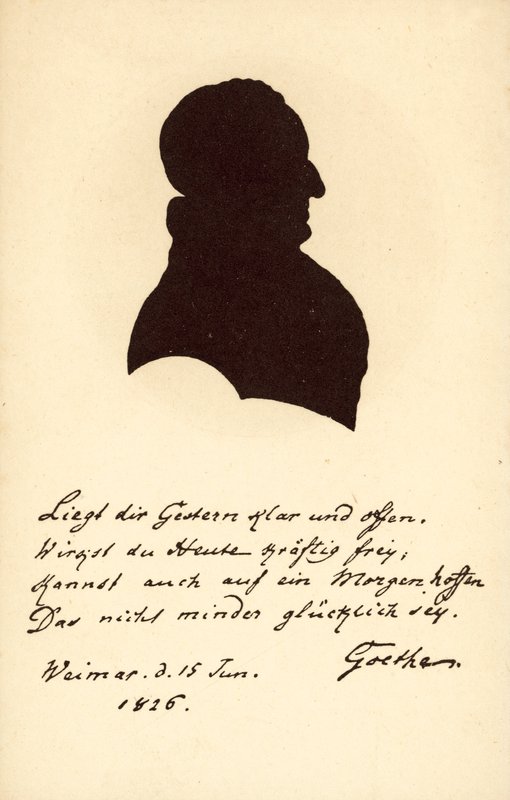 Liegt dir Gestern klar und offen.
Wirkst du Heute kräftig frey;
Kannst auch auf ein Morgen hoffen
Das nicht minder glücklich sey.
Goethe.
Weimar. d. 15 Jun.
1826.